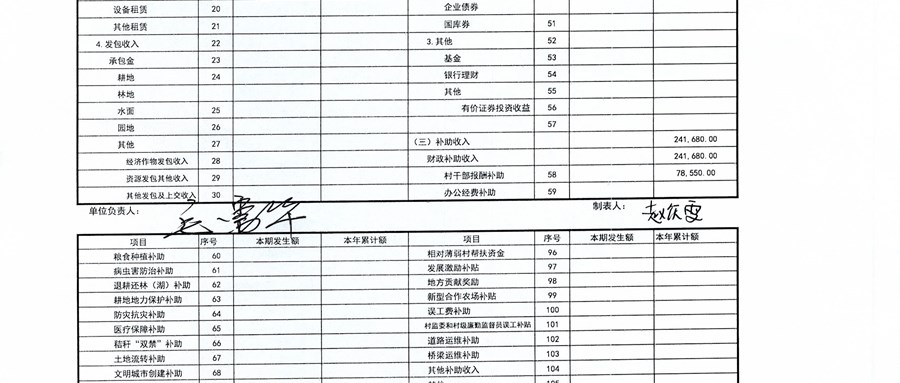 设备租赁 20 企业债券
其他租赁 21 国库券 51
4.发包收入 22 3.其他 52
承包金 23 基金 53
耕地 24 银行理财 54
林地 其他 55
水面 25 有价证券投资收益 56
园地 26 57
其他 27 (三)补助收入 241,680.00
经济作物发包收入 28 财政补助收入 241,680.00
资源发包其他收入 29 村干部报酬补助 58 78,550.00
其他发包及上交收入 30 办公经费补助 59
单位负责人： 制表人：
项目 序号 本期发生额 本年累计额 项目 序号 本期发生额 本年累计额
粮食种植补助 60 相对薄弱村帮扶资金 96
病虫害防治补助 61 发展激励补贴 97
退耕还林（湖）补助 62 地方贡献奖励 98
耕地地力保护补助 63 新型合作农场补贴 99
防灾抗灾补助 64 误工费补助 100
医疗保障补助 65 村监委和村级廉勤监督员误工补贴 101
秸秆“双禁”补助 66 道路运维补助 102
土地流转补助 67 桥梁运维补助 103
文明城市创建补助 68 其他补助收入 104